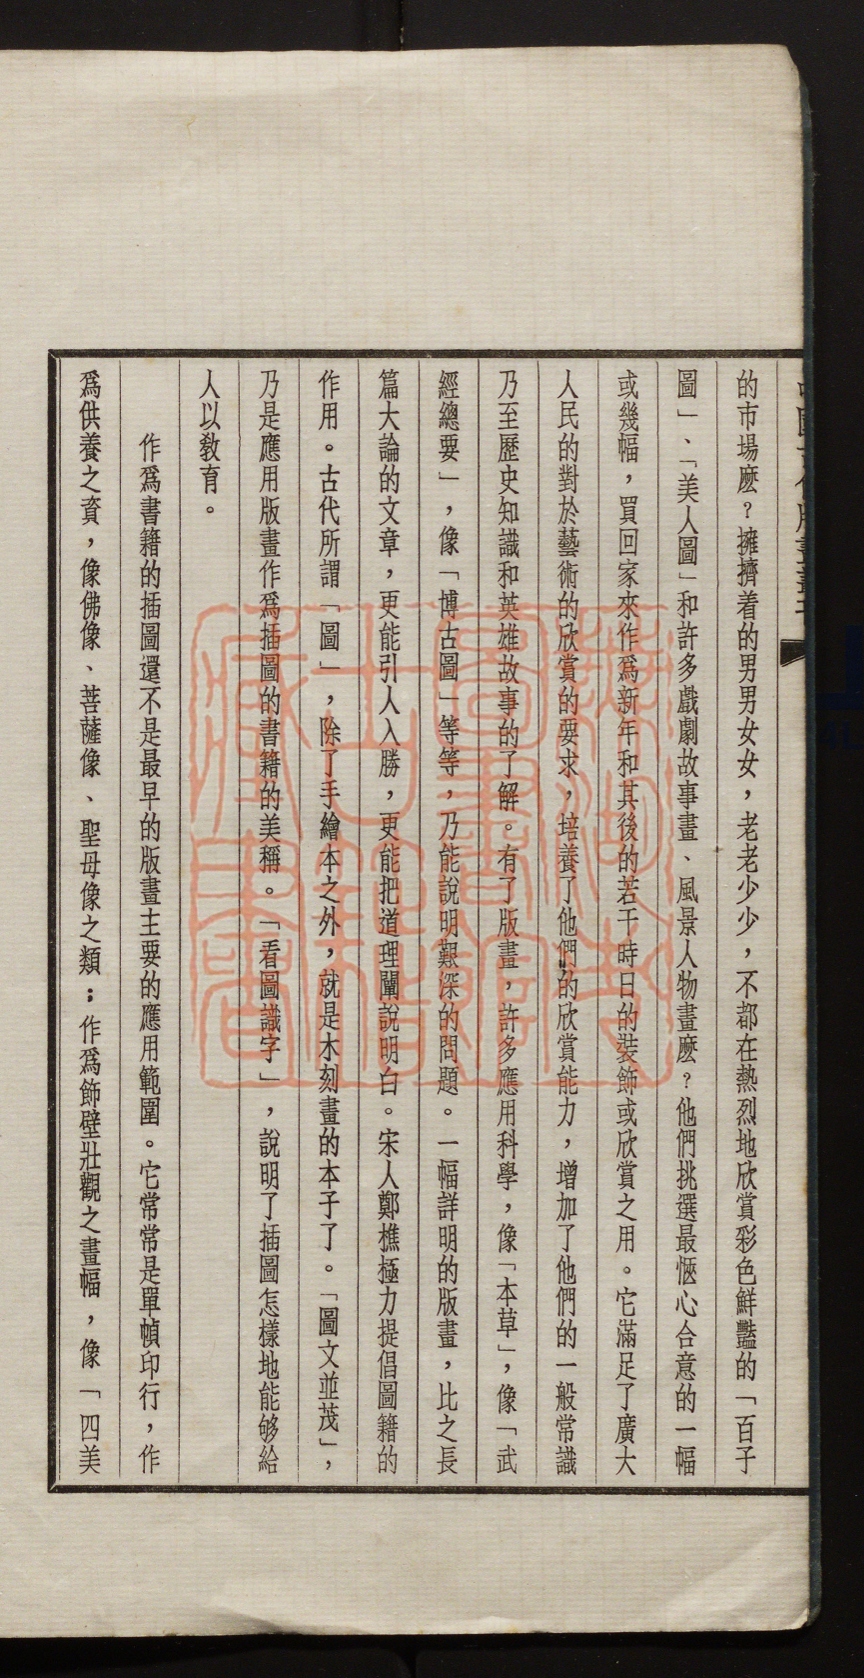 的市場麽？擁擠着的男男女女，老老少少，不都在熱烈地欣賞彩色鮮豔的「百子
圖」、「美人圖」和許多戲劇故事畫、風景人物畫麽？他們挑選最愜心合意的一幅
或幾幅，買回家來作爲新年和其後的若干時日的裝飾或欣賞之用。它滿足了廣大
人民的對於藝術的欣賞的要求，培養了他們的欣賞能力，增加了他們的一般常識
乃至歷史知識和英雄故事的了解。有了版畫，許多應用科學，像「本草」，像「武
經總要」，像「博古圖」等等，乃能說明艱深的問題。一幅詳明的版畫，比之長
篇大論的文章，更能引人入勝，更能把道理闡說明白。宋人鄭樵極力提倡圖籍的
作用。古代所謂「圖」，除了手繪本之外，就是木刻畫的本子了。「圖文並茂」，
乃是應用版畫作爲插圖的書籍的美稱。「看圖識字」，說明了插圖怎樣地能够給
人以敎育。
作爲書籍的插圖還不是最早的版畫主要的應用範圍。它常常是單幀印行，作
爲供養之資，像佛像、菩薩像、聖母像之類；作爲飾壁壯觀之畫幅，像「四美